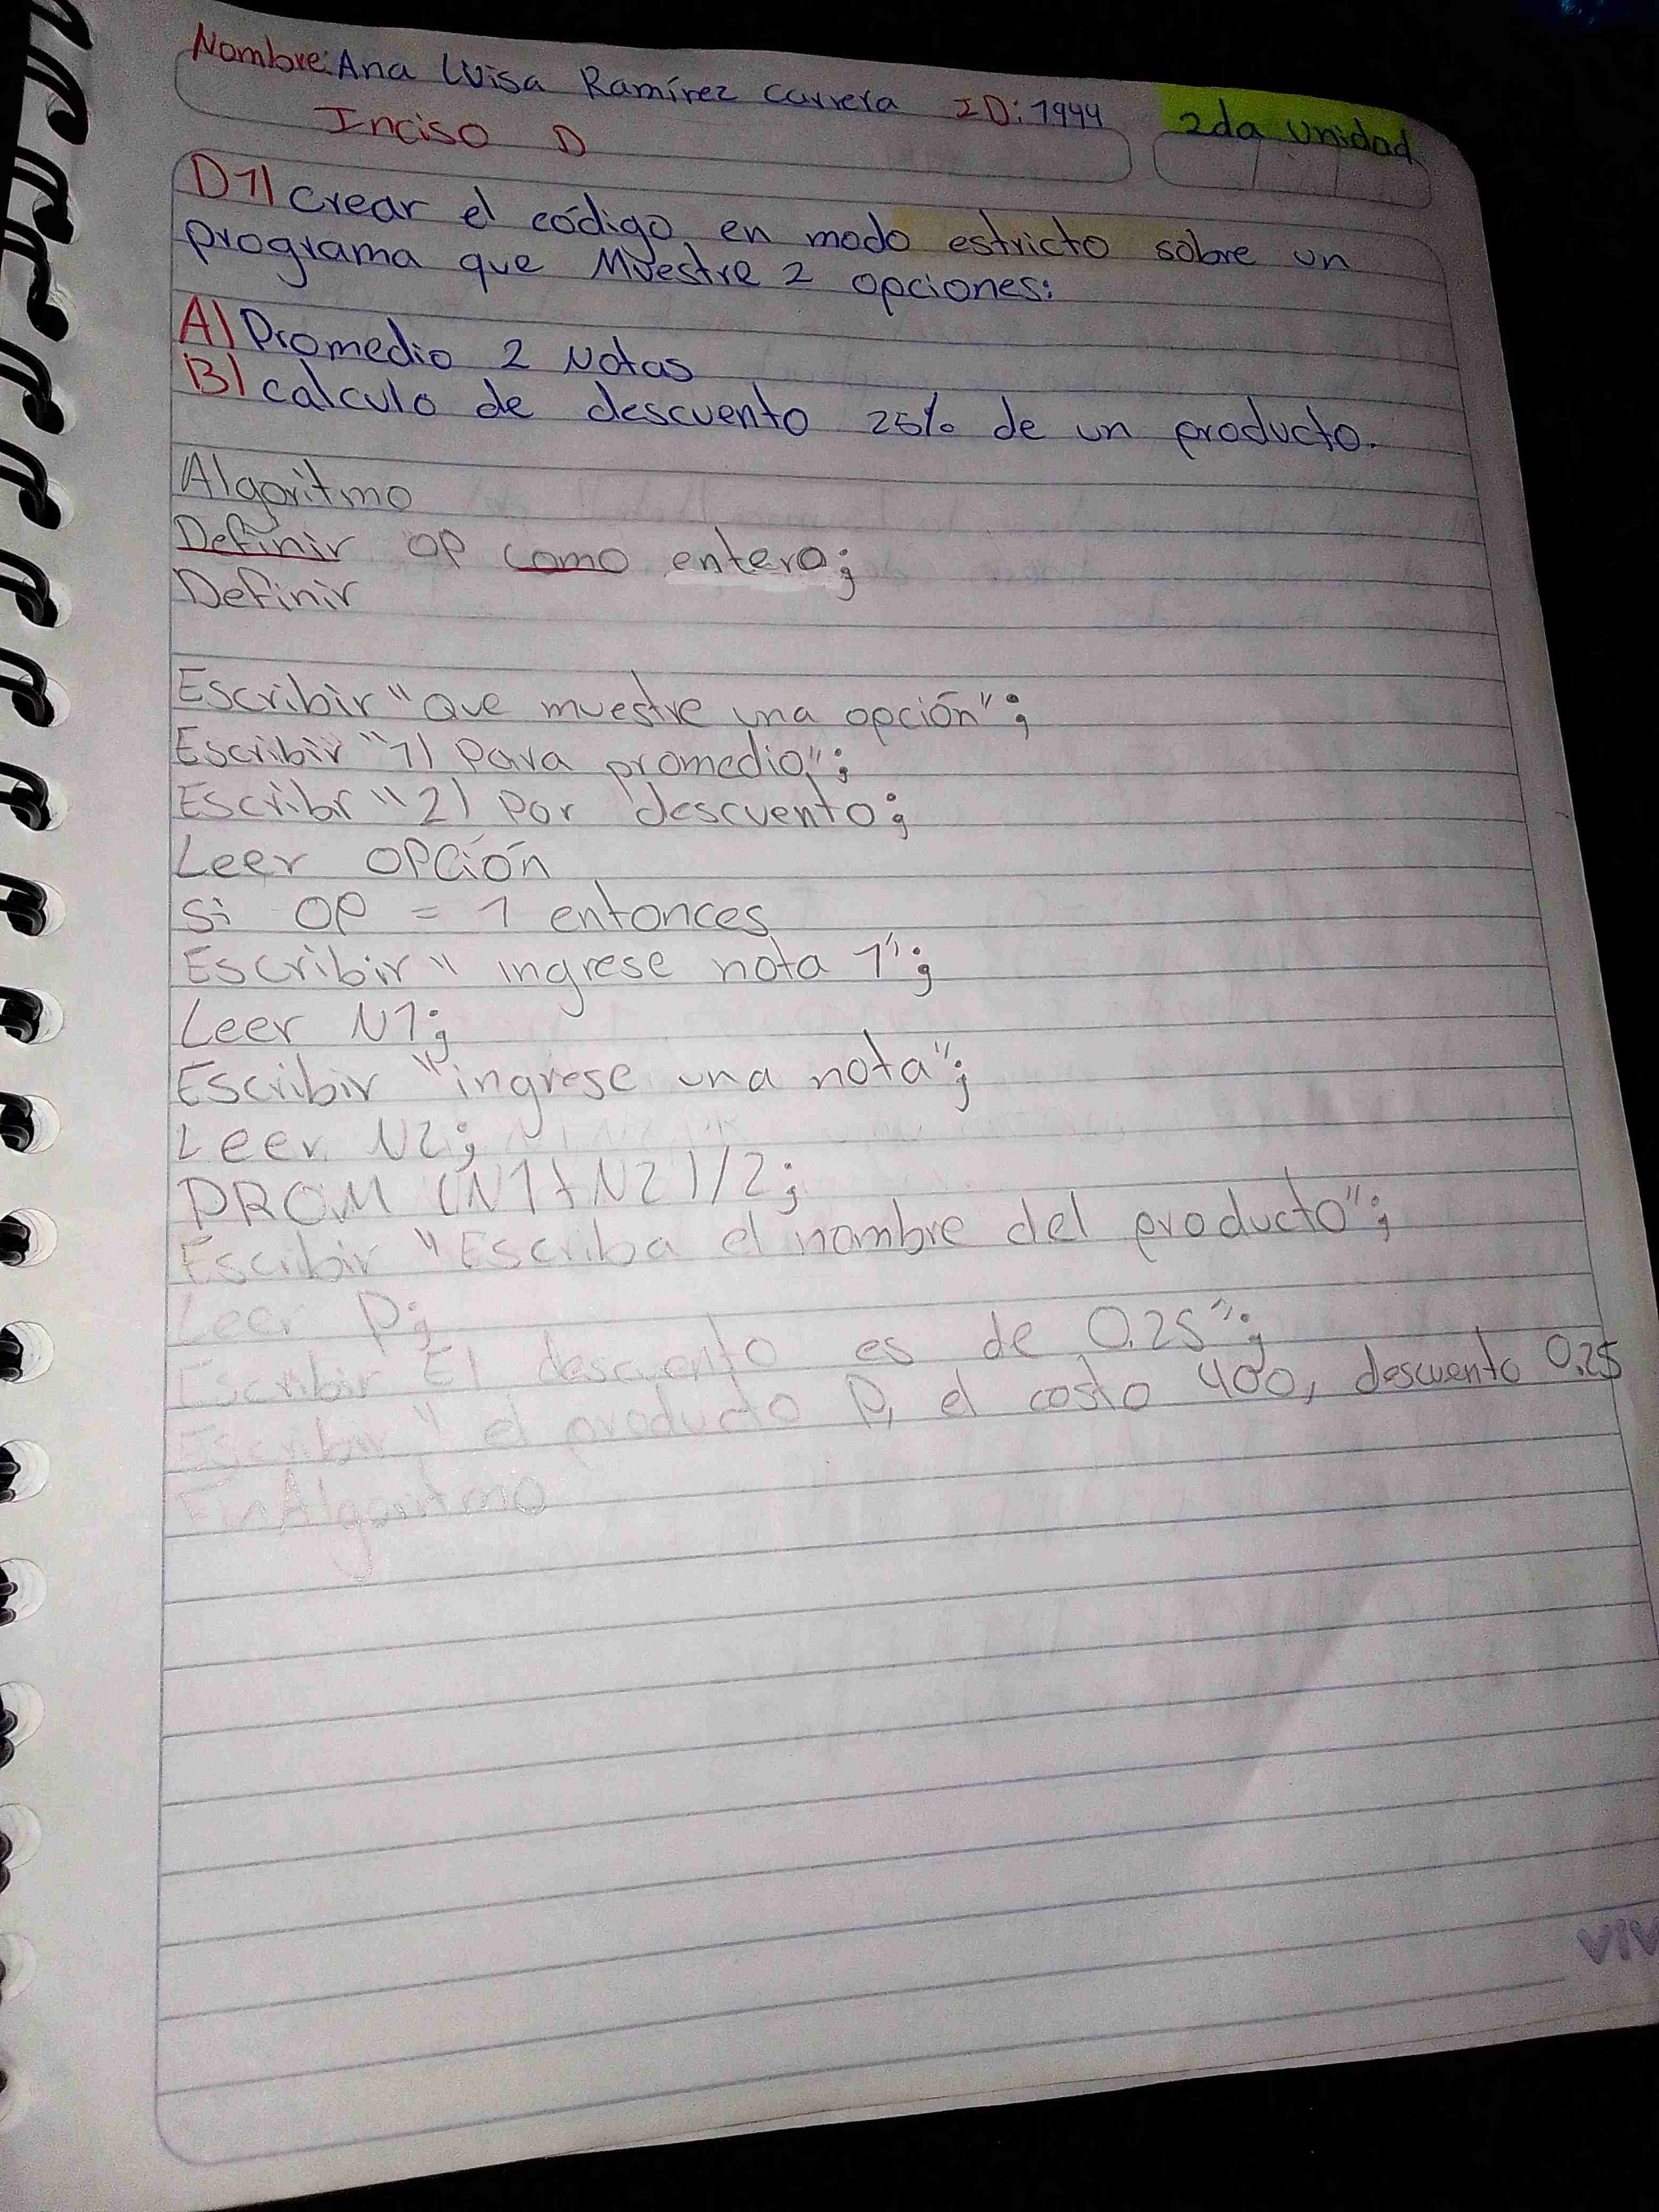 Nombre: Ana Luisa Ramírez Carrera ID: 1944 2da Unidad
Inciso D
D1) Crear el código en modo estricto sobre un
programa que Muestre 2 opciones:
A) Promedio 2 Notas
B) Calculo de descuento 25% de un producto.
Algoritmo
Definir OP como entero;
Definir
Escribir "Que muestre una opción";
Escribir "1) Para promedio";
Escribr "2) Por descuento;
Leer OPCión
Si OP = 1 entonces
Escribir" ingrese nota 1";
Leer N1;
Escribir "ingrese una nota";
Leer N2;
PROM (N1+N2)/2;
Escribir "Escriba el nombre del producto";
Leer P;
Escribir El descuento es de 0.25";
Escribir "el producto P, el costo 400, descuento 0.25
FinAlgoritmo
VIV